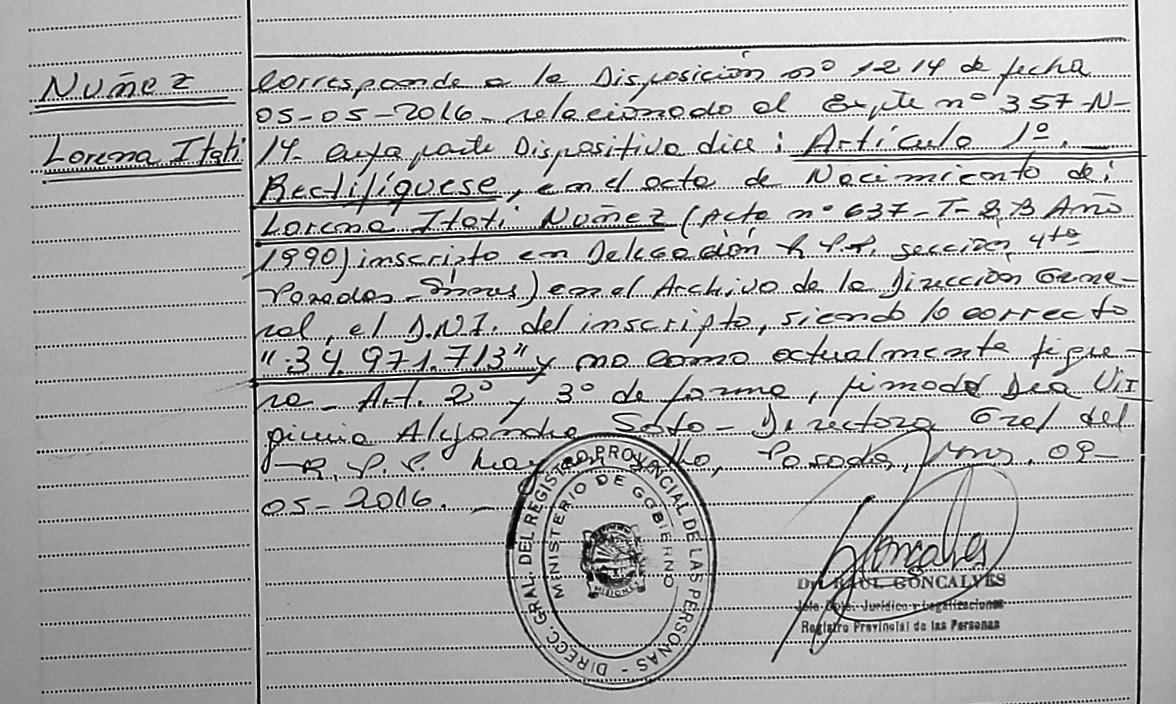 Nuñez
Lorena Itati
Corresponde a la Disposición nº 1214 de fecha
05-05-2016- relacionado al Expte nº 357-N-
14- cuya parte Dispositiva dice: Artículo 1º.
Rectifíquese, en el acta de Nacimiento de:
Lorena Itati Nuñez (Acta nº 637-T-2B Año
1990) inscripto en Delegación R.P.P. sección 4ta
Posadas - Mnes) en el Archivo de la Dirección Gene-
ral, el D.N.I. del inscripto, siendo lo correcto
"34.971.713" y no como actualmente figu-
ra - Art. 2º y 3º de forma, firmado Dra Vir
ginia Alejandra Soto - Directora Gral del
R.P.P. Posadas, Mnes. 09-
05-2016. -
DIRECC. GRAL. DEL REGISTRO PROVINCIAL DE LAS PERSONAS -
MINISTERIO DE GOBIERNO
MISIONES
Goncalves
Dr. RAUL GONCALVES
Jefe Dpto. Jurídico y Legalizaciones
Registro Provincial de las Personas